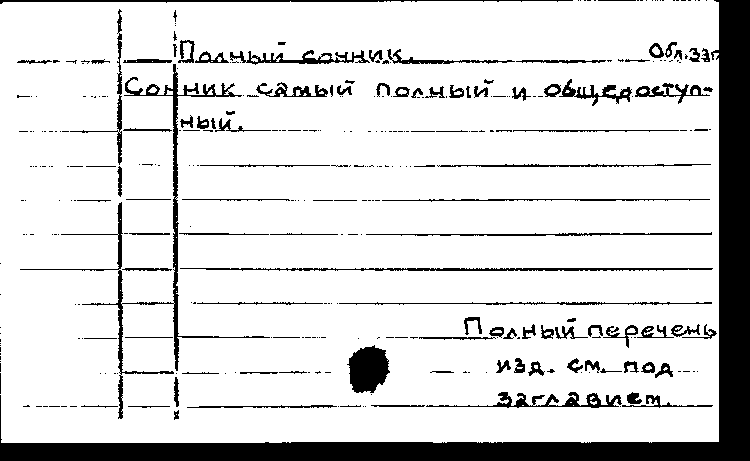 Полный сонник. Обл. заг
Сонник самый полный и общедоступ-
ный.
Полный перечень
изд. см. под
заглавием.